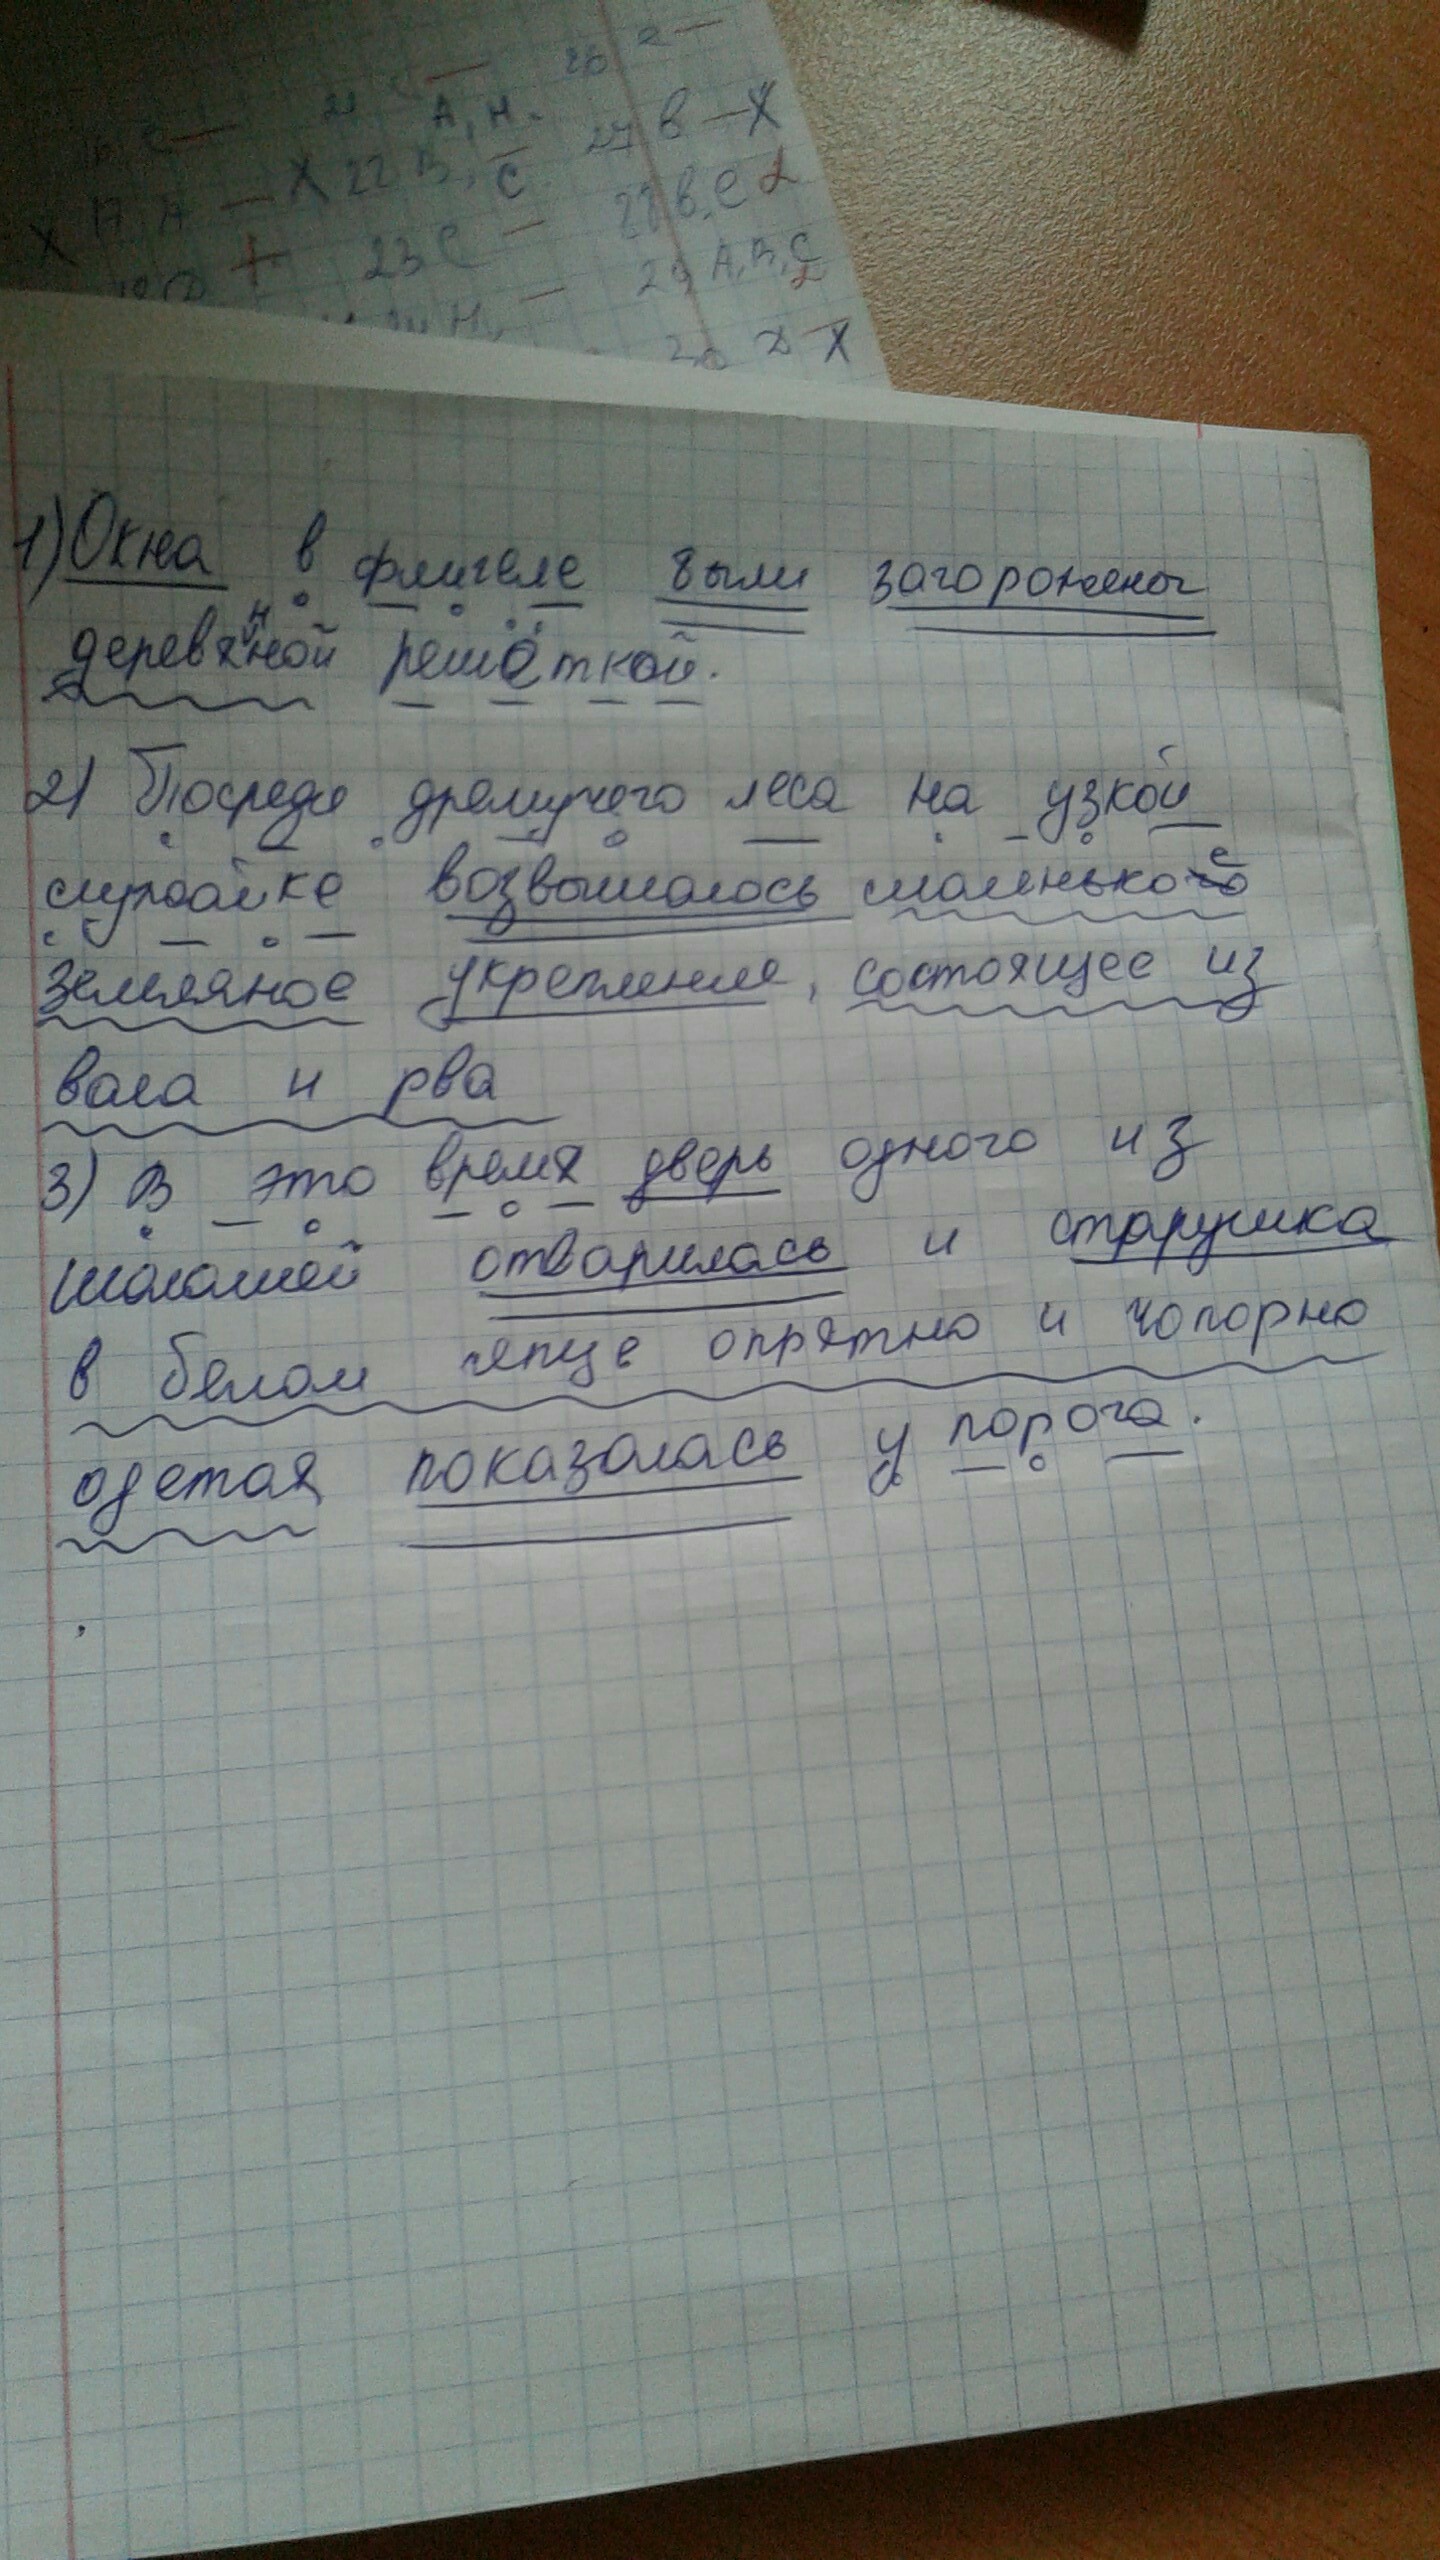 26 г
21 с
А, Н.
27 В - Х
Х 17 А - Х 22 В, С
28 В, С 2
+ 23 С -
29 А, В, С
2
Х
1) Окна в флигеле были загорожены
деревянной решёткой.
2) Посреди дремучего леса на узкой
лужайке возвышалось маленькое
земляное укрепление, состоящее из
вала и рва
3) В это время дверь одного из
шалашей отварилась и старушка
в белом чепце опрятно и чопорно
одетая показалась у порога.